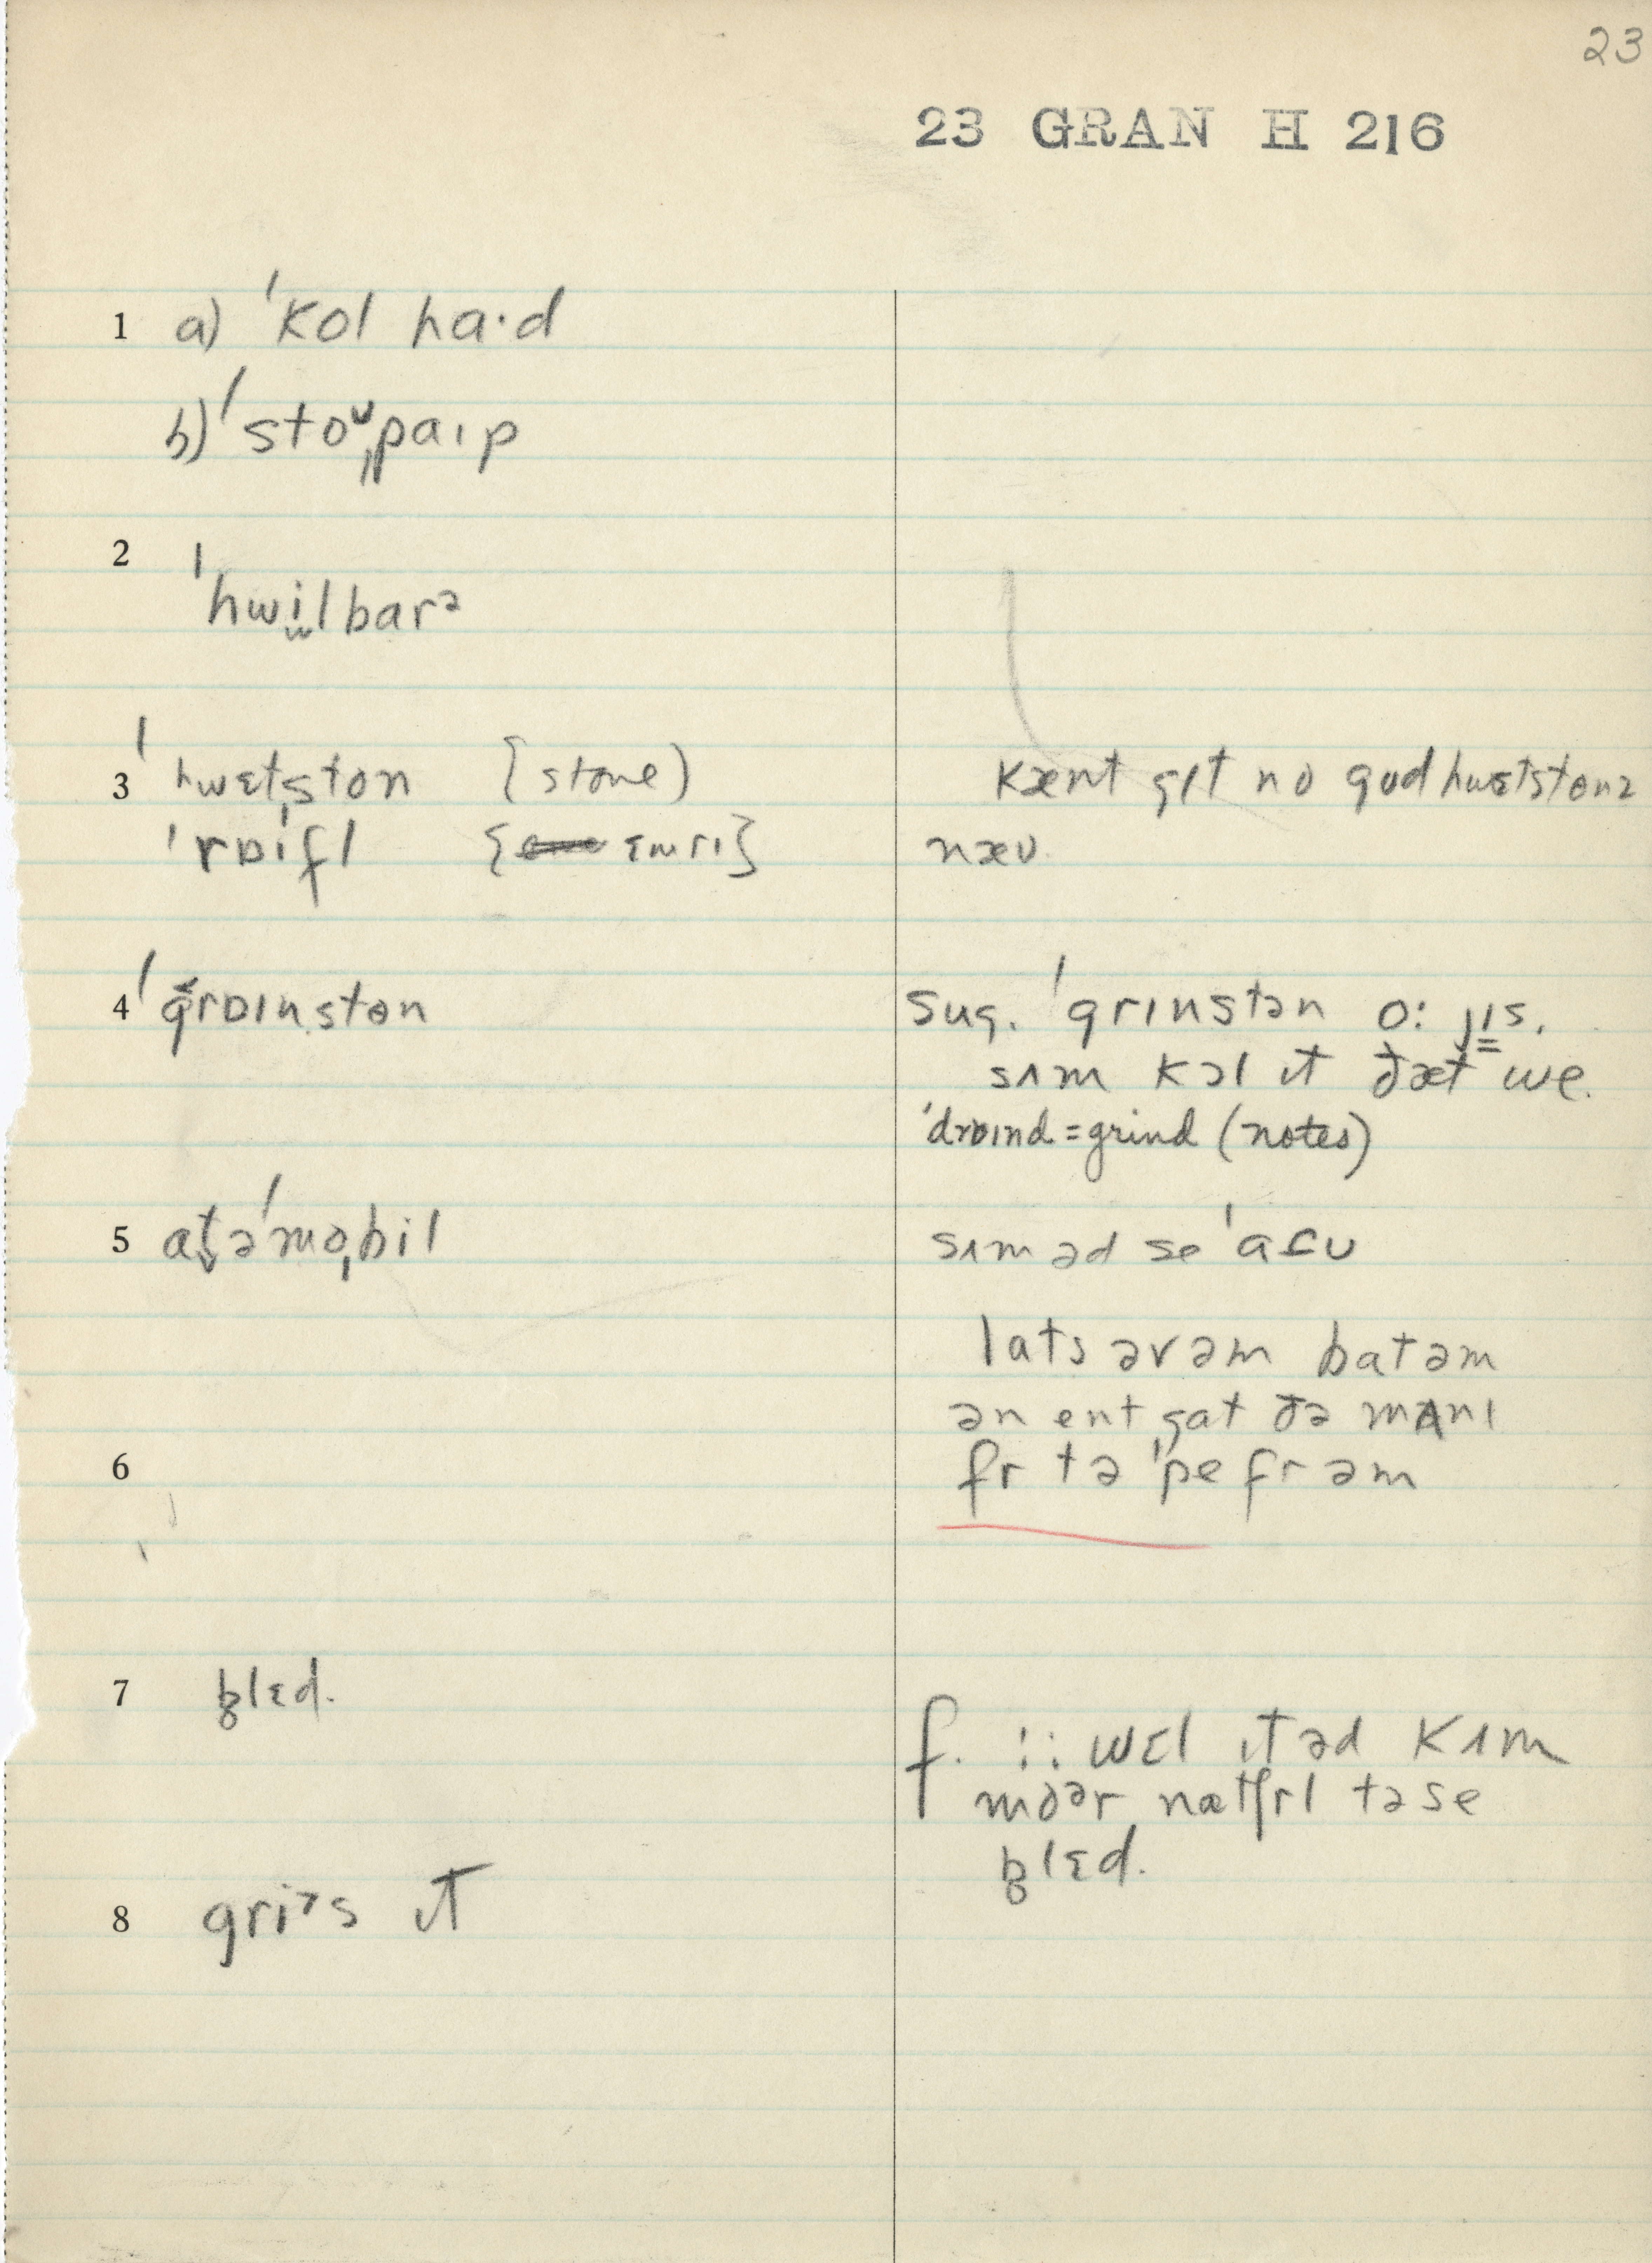 23
23 GRAN H 216
1 a) ˈkol ha·d
b) ˈstoᶷˌpaɪp
2 ˈhwilbarᵊ
3 ˈhwɛtˌston {stone)
kænt gɪt no gud hwɛtstonz
ˈrɒɪfl { ɛmrɪ}
næʊ
4 ˈgrɒɪnˌston
Sug. ˈgrɪnstən o: jɪs.
sʌm kɔl ɪt ðæt we.
ˈdrɒɪnd = grind (notes)
5 atəˈmoˌbil
sʌm əd se ˈafʊ
lats əvəm batəm
ən ent gat ðə mʌnɪ
6
fr tə ˈpe frəm
7 blɛd.
f. :: wɛl ɪt əd kʌm
moᵊr nætʃrl tə se
blɛd.
8 griᵊs ɪt